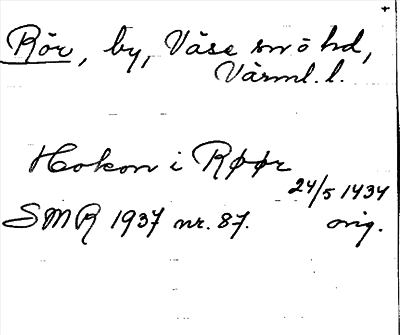 Rör, by, Väse sn o hd,
Värml. l.
Hokon i Røør
24/5 1434
SMR 1937 nr. 87. orig.